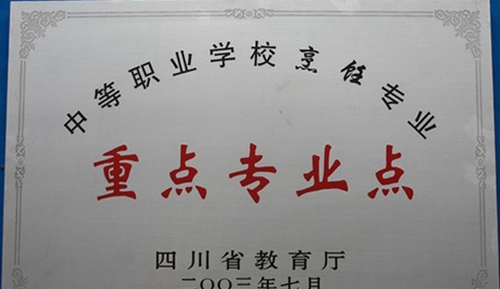 中等职业学校烹饪专业
重点专业点
四川省教育厅
二〇〇三年七月